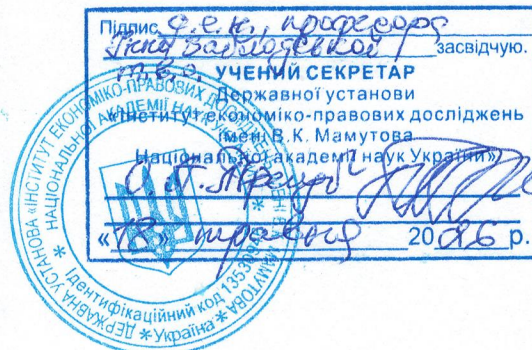 Підпис д.е.н., професора
Інни Заблодської засвідчую.
т.в.о. УЧЕНИЙ СЕКРЕТАР
Державної установи
«Інститут економіко-правових досліджень
імені В.К. Мамутова
Національної академії наук України»
«18» травня 2026 р.
ДЕРЖАВНА УСТАНОВА «ІНСТИТУТ ЕКОНОМІКО-ПРАВОВИХ ДОСЛІДЖЕНЬ МАМУТОВА
НАЦІОНАЛЬНОЇ АКАДЕМІЇ НАУК
Ідентифікаційний код
* Україна *